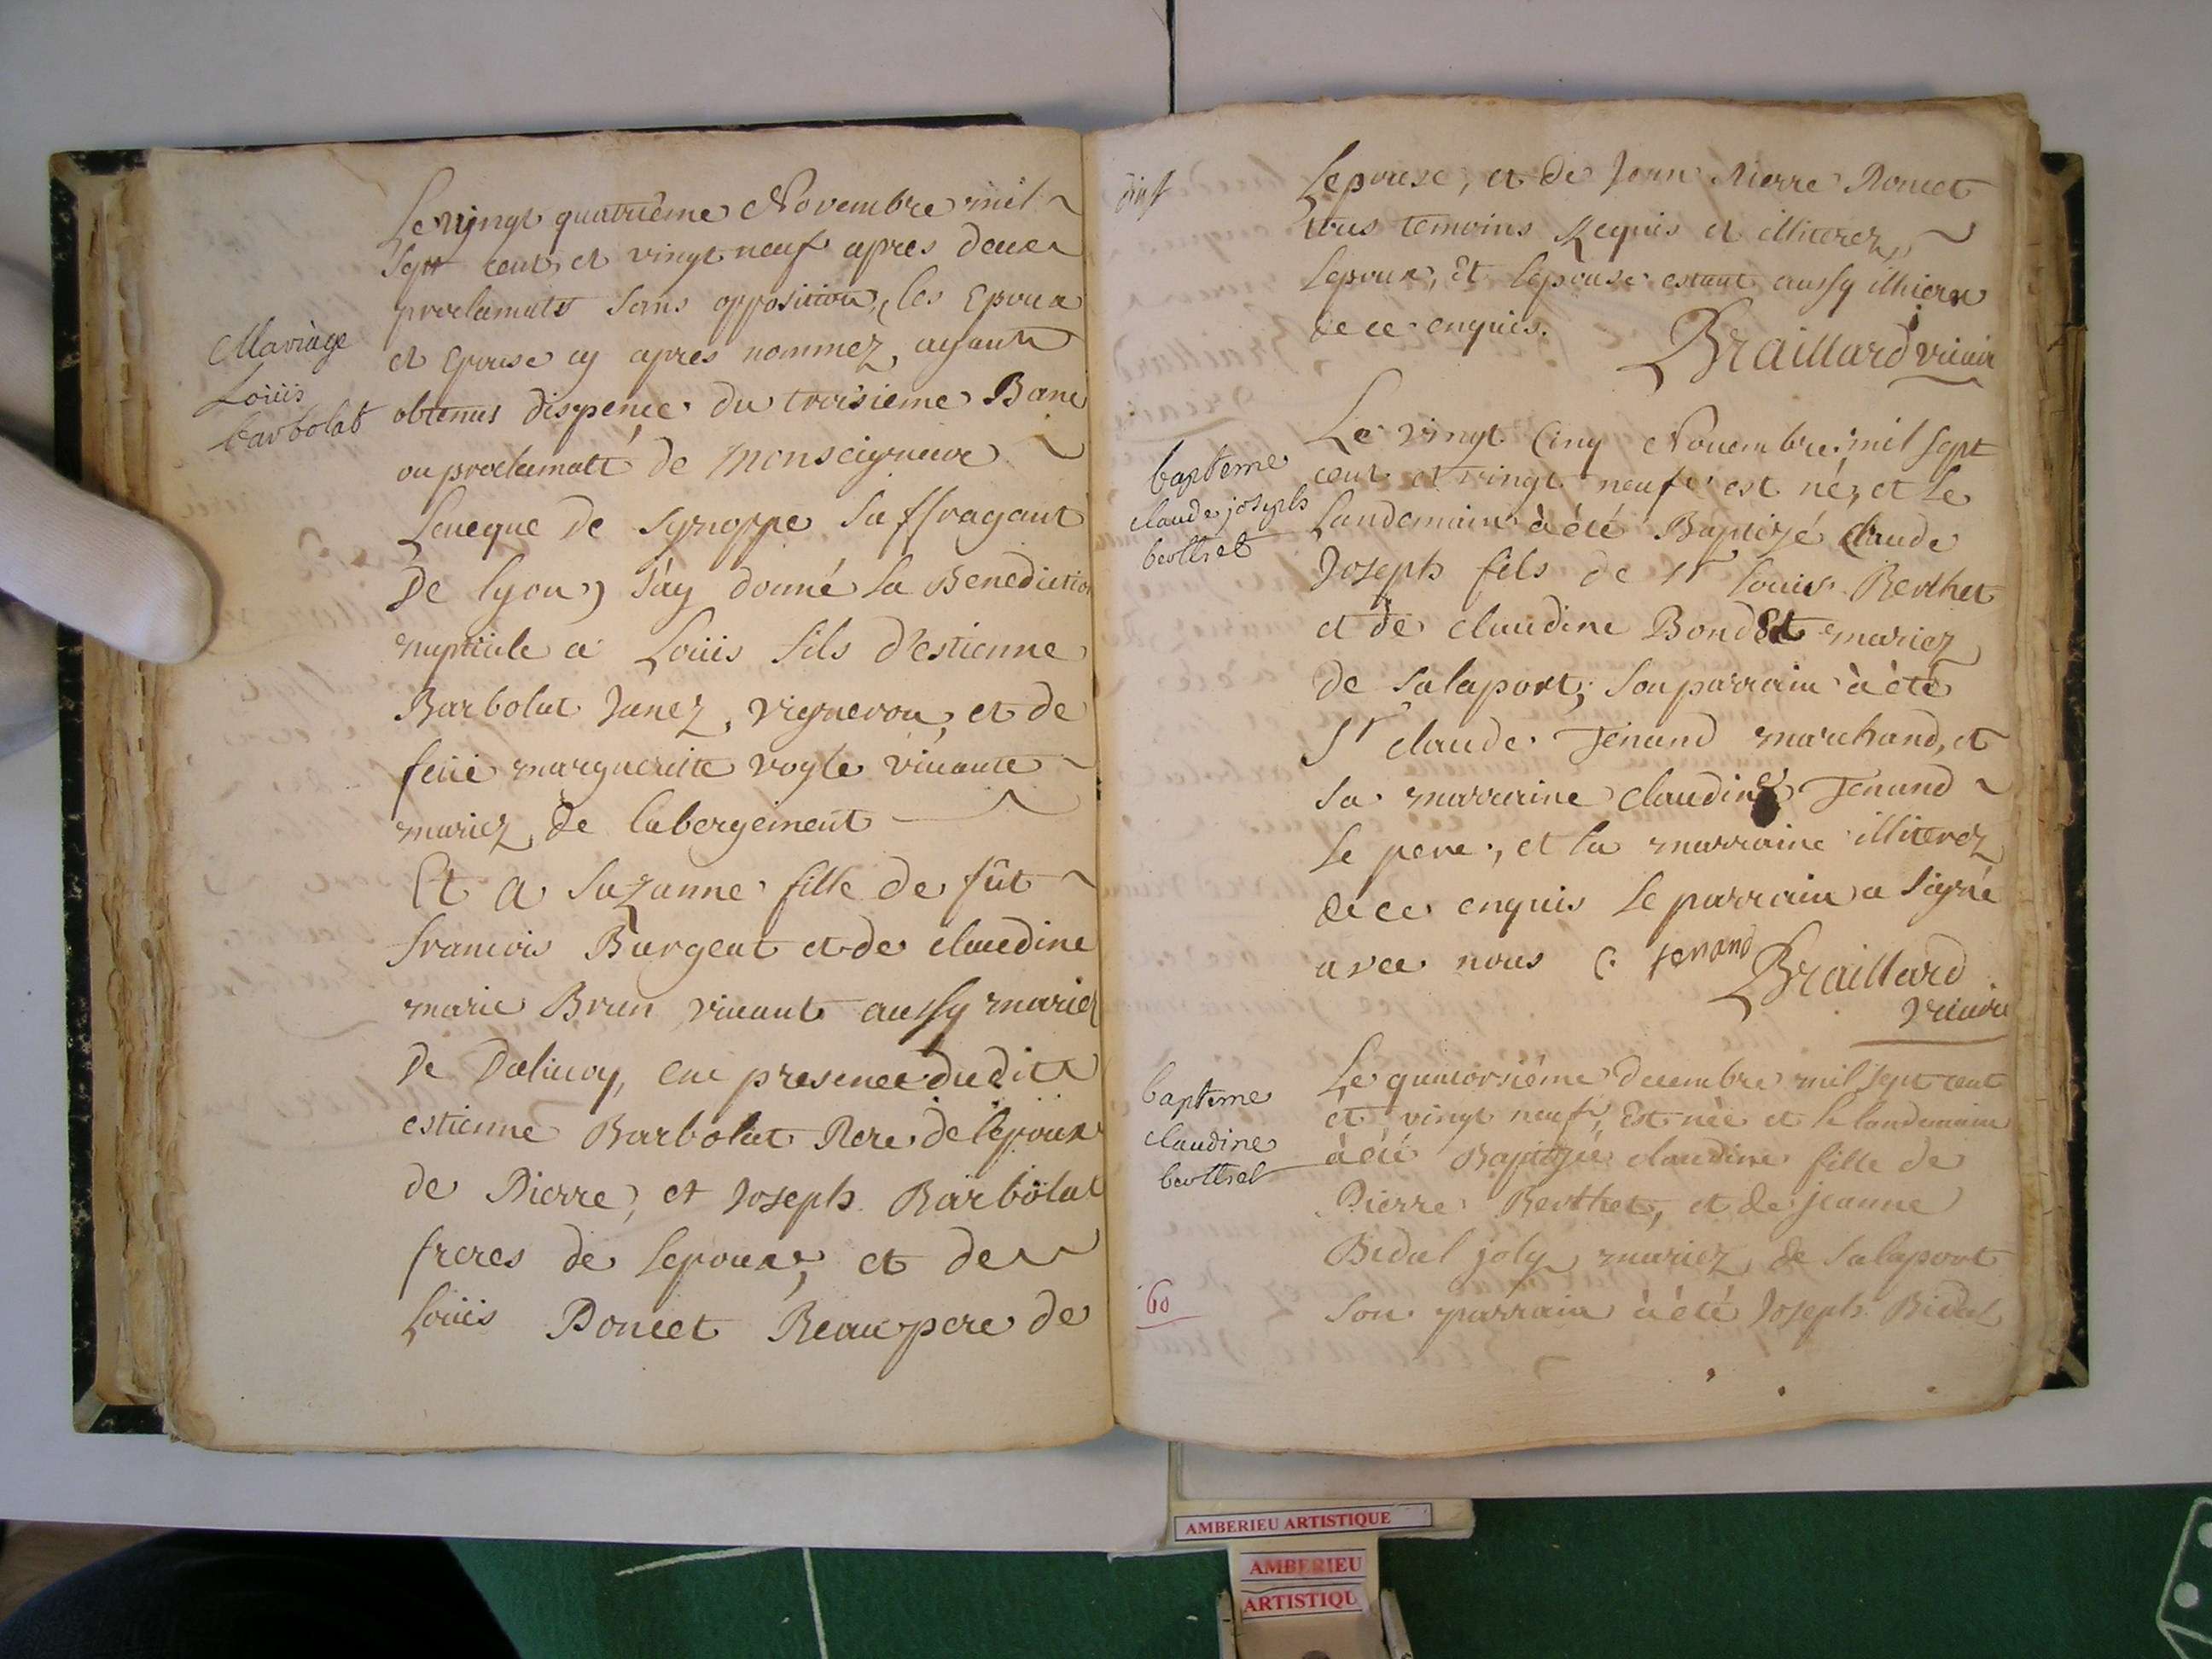 Mariage
Loüis
barbolat
Le vingt quatrième Novembre mil
Sept cent et vingt neuf apres deux
proclamats sans opposition, les Epoux
et Epouse cy apres nommez, ayant
obtenus dispence du troisieme Banc
ou proclamatt de Monseigneur
Leveque de Synoppe Suffragant
De lyon, J'ay donné la Benediction
nuptiale a Loüis fils d'estienne
Barbolat Junez, vigneron, et de
feüe marguerite vivante
mariez de labergement
Et a Suzanne fille de fût
francois Burgeat et de claudine
marie Brun vivant aussy mariez
De en presence dudit
estienne Barbolat Pere de lepoux
de Pierre, et Joseph Barbolat
freres de lepoux, et de
Loüis Poncet Beau pere de
Lepouse, et de Jean Pierre Poncet
tous temoins Requis et illiterez,
Lepoux, Et lepouse estant aussy
de ce enquis.
Braillard vicaire
bapteme
claude joseph
berthet
Le vingt Cinq Novembre mil sept
cent et vingt neuf est né, et Le
Landemain à été Baptizé Claude
Joseph fils de Sr Louis Berthet
et de claudine Bondet mariez
de Salaport; Son parrain à été
Sr claude Jenand marchand, et
Sa marraine claudine Jenand
Le pere, et la marraine illiterez
de ce enquis Le parrain a Signé
avec nous C. jenand Braillard
vicaire
bapteme
claudine
berthet
Le quatorsiéme decembre mil sept cent
et vingt neuf, Est née et le landemain
à été Baptizée claudine fille de
Pierre Berthet, et de jeanne
Bidal joly mariez de Salaport
Son parrain à été Joseph Bidal
60
AMBERIEU ARTISTIQUE
AMBERIEU
ARTISTIQU